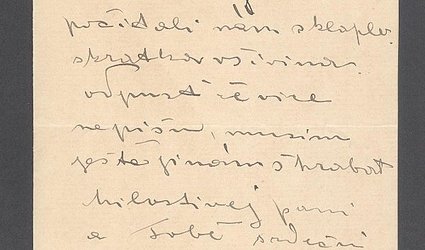 počítali nám sklaplo
skrátka všivina.
odpusť že více
nepíšu, musím
ještě jinám škrabat
Milostivej paní
a Tobě srdeční